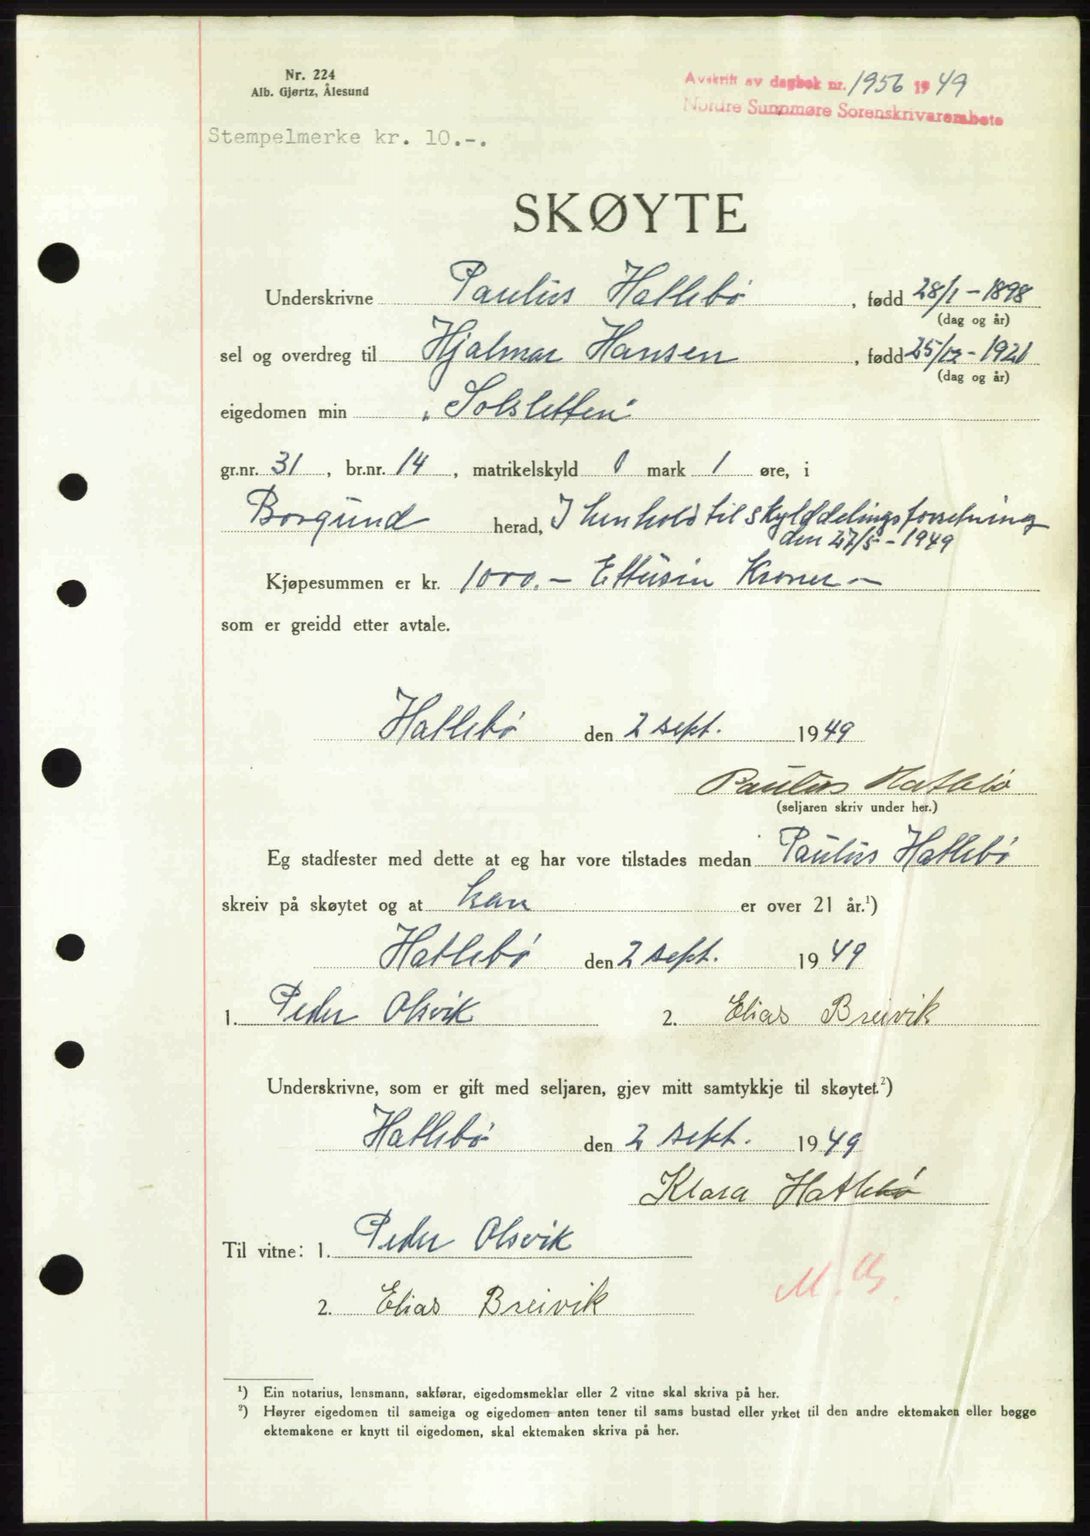 Nr. 224
Alb. Gjørtz, Ålesund
Avskrift av dagbok nr. 1956 1949
Nordre Sunnmøre Sorenskrivarembete
Stempelmerke kr. 10.-.
SKØYTE
Underskrivne Paulus Hatlebø, fødd 28/1-1898
(dag og år)
sel og overdreg til Hjalmar Hansen, fødd 25/12-1921
(dag og år)
eigedomen min "Solsletten"
gr.nr. 31, br.nr. 14, matrikelskyld 0 mark 1 øre, i
Borgund herad, I henhold til skylddelingsforretning
den 27/5-1949
Kjøpesummen er kr. 1000.- Ettusin Kroner-
som er greidd etter avtale.
Hatlebø den 2 sept. 1949
Paulus Hatlebø
(seljaren skriv under her.)
Eg stadfester med dette at eg har vore tilstades medan Paulus Hatlebø
skreiv på skøytet og at han er over 21 år.¹)
Hatlebø den 2 sept. 1949
1. Peder Olsvik 2. Elias Breivik
Underskrivne, som er gift med seljaren, gjev mitt samtykkje til skøytet.²)
Hatlebø den 2 sept. 1949
Klara Hatlebø
Til vitne: 1. Peder Olsvik
2. Elias Breivik
¹) Ein notarius, lensmann, sakførar, eigedomsmeklar eller 2 vitne skal skriva på her.
²) Høyrer eigedomen til sameiga og eigedomen anten tener til sams bustad eller yrket til den andre ektemaken eller begge
ektemakene er knytt til eigedomen, skal ektemaken skriva på her.